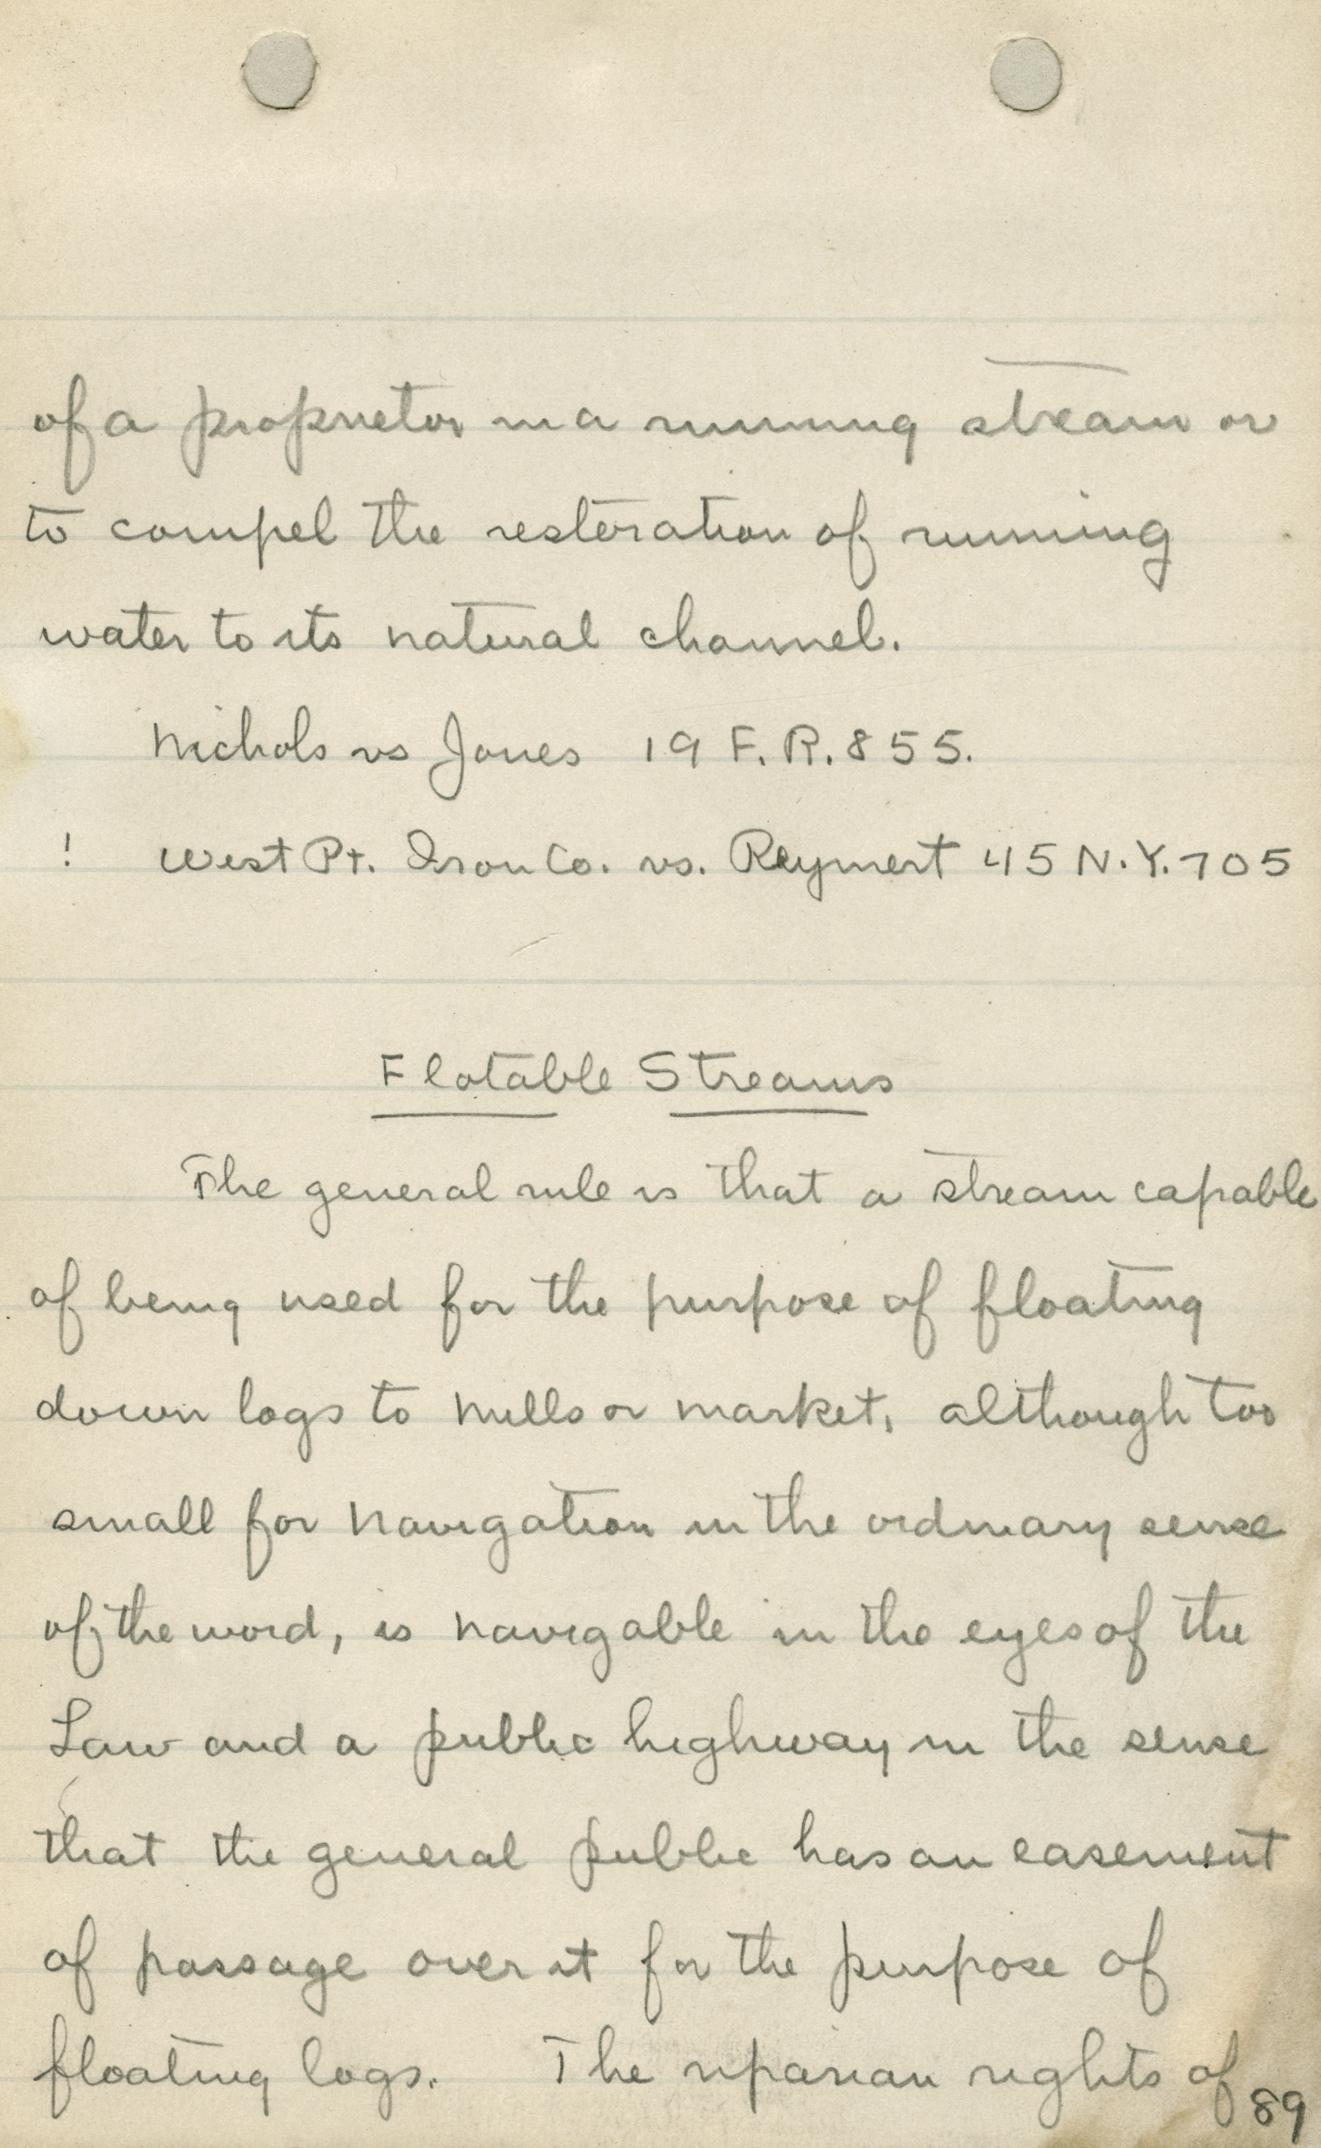 of a proprietor in a running stream or
to compel the restoration of running
water to its natural channel.
Nichols vs Jones 19 F. R. 855.
! West Pt. Iron Co. vs. Reymert 45 N.Y. 705
Flotable Streams
The general rule is that a stream capable
of being used for the purpose of floating
down logs to mills or market, although too
small for navigation in the ordinary sense
of the word, is navigable in the eyes of the
Law and a public highway in the sense
that the general public has an easement
of passage over it for the purpose of
floating logs. The riparian rights of
89